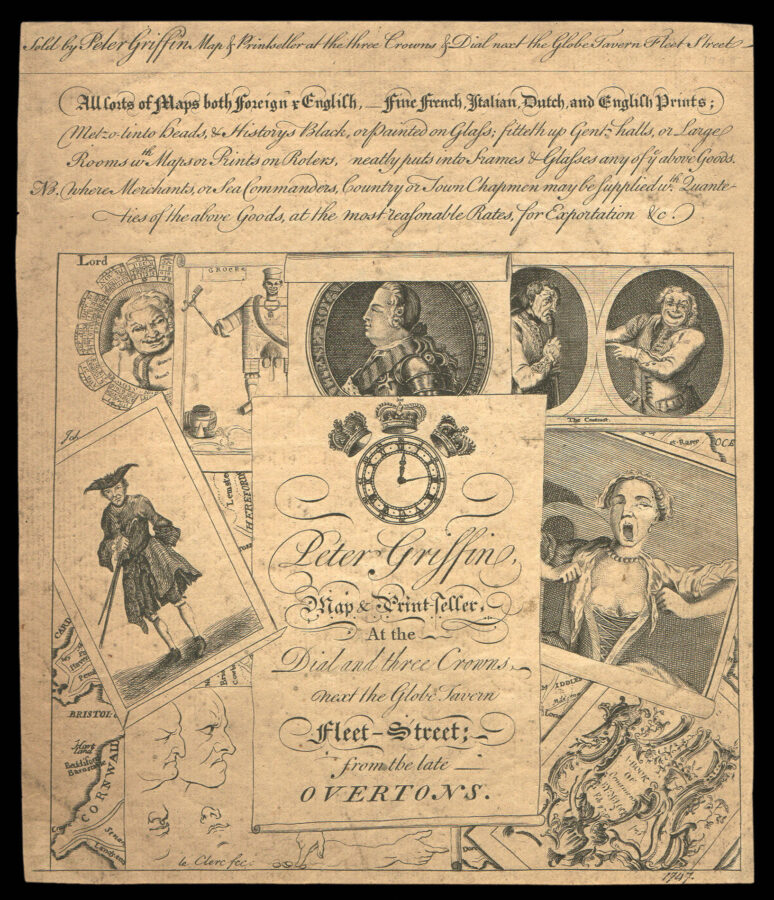 Sold by Peter Griffin Map & Printseller at the three Crowns & Dial next the Globe Tavern Fleet Street
All sorts of Maps both Foreign & English, — Fine French, Italian, Dutch, and English Prints;
Metzo-tinto Heads, & Historys Black, or Painted on Glass; fitteth up Gent.s halls, or Large
Rooms wth Maps or Prints on Rolers, neatly puts into Frames & Glasses any of ye above Goods.
NB. Where Merchants, or Sea Commanders, Country or Town Chapmen may be Supplied wth. Quante-
ties of the above Goods, at the most reasonable Rates, for Exportation &c.
Lord
The Contrast.
Peter Griffin,
Map & Print-seller,
At the
Dial and three Crowns,
next the Globe Tavern
Fleet-Street;
from the late
OVERTONS.
HEREFORD
BRISTOL
CORNWAL
A BOOK
OF
le Clerc fec:
1747.